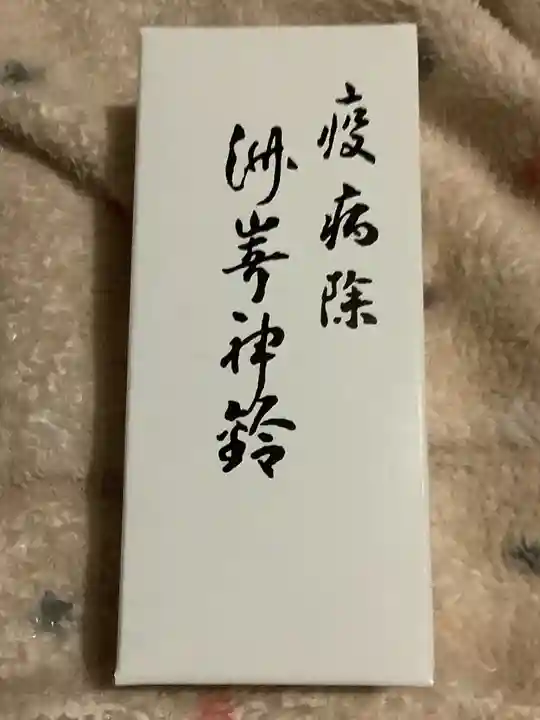 疫病除
洲嵜神鈴